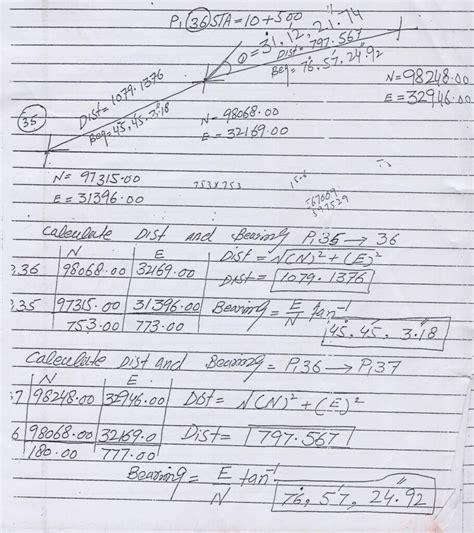 P, 36 STA=10+500
θ=31, 12, 21.74
Dist= 797.567
Beg= 76, 57, 24.92
N=98248.00
E=32946.00
Dist= 1079.1376
Beg= 45, 45, 3.18
35
N= 98068.00
E= 32169.00
N= 97315.00
E= 31396.00
753x753
15.6
567009
597529
Calculate Dist and Bearing P,35 → 36
N E Dist = √(N)²+(E)²
36 98068.00 32169.00 Dist = 1079.1376
35 97315.00 31396.00 Bearing = E/N tan⁻¹
753.00 773.00 45, 45, 3.18
Calculate Dist and Bearing = P,36 → P,37
N E
37 98248.00 32946.00 Dist = √(N)²+(E)²
6 98068.00 32169.0 Dist= 797.567
180.00 777.00
Bearing = E/N tan⁻¹
76, 57, 24.92